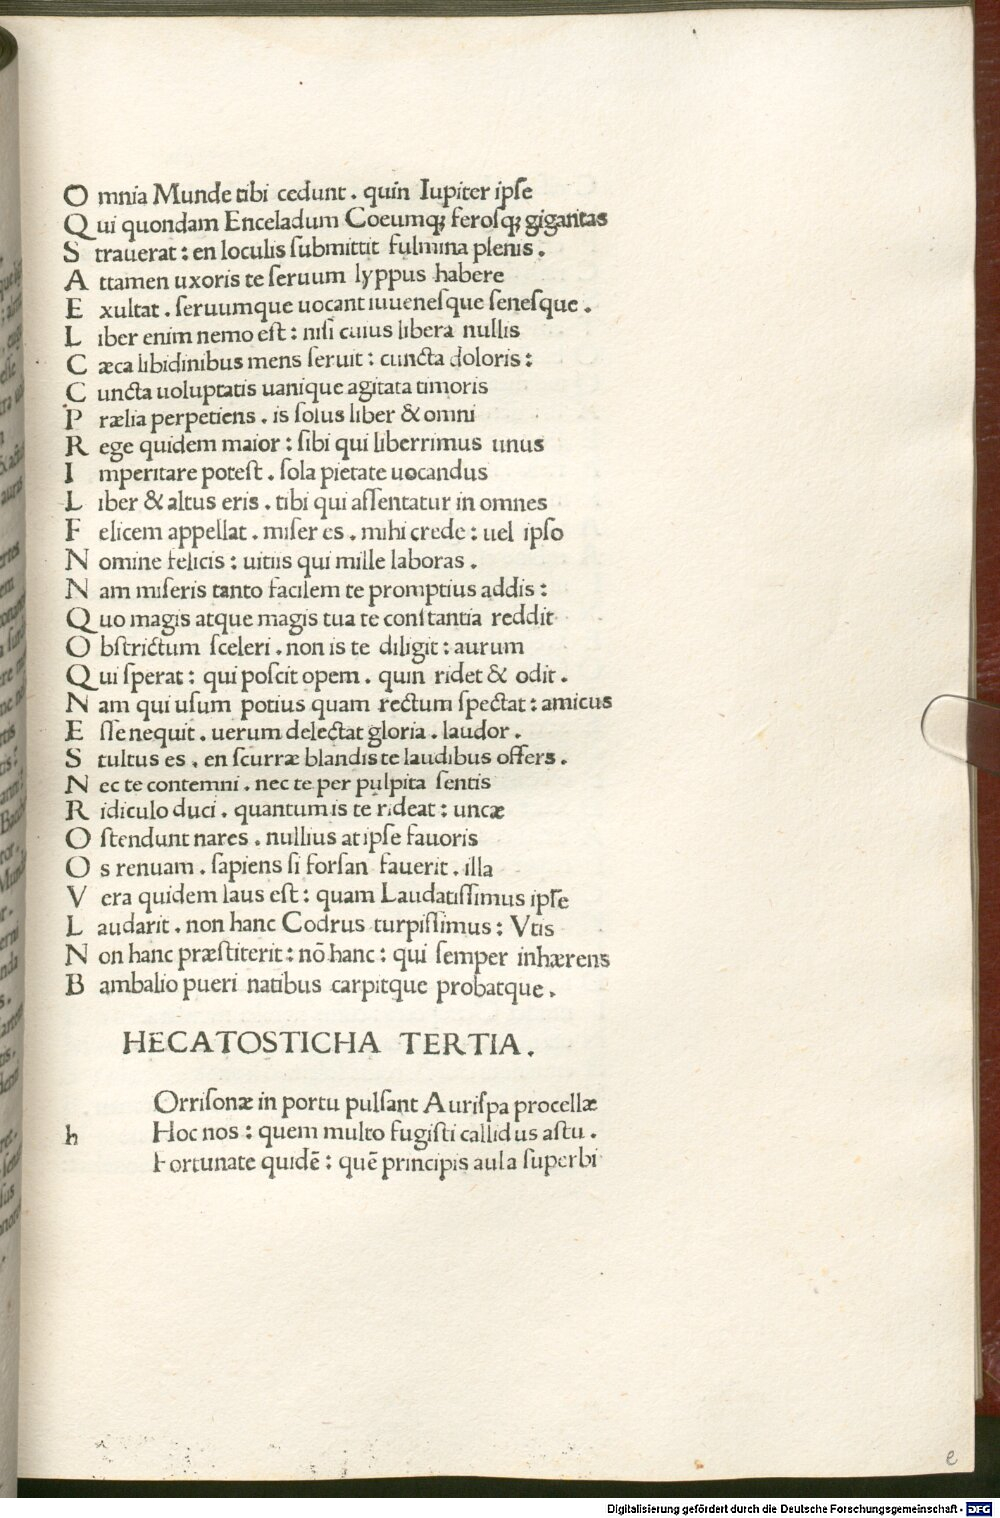 O mnia Munde tibi cedunt . quin Iupiter ipſe
Q ui quondam Enceladum Coeumqꝫ feroſqꝫ gigantas
S trauerat : en loculis ſubmittit fulmina plenis .
A ttamen uxoris te ſeruum lyppus habere
E xultat . ſeruumque uocant iuuenesque ſenesque .
L iber enim nemo eſt : niſi cuius libera nullis
C æca libidinibus mens ſeruit : cuncta doloris :
C uncta uoluptatis uanique agitata timoris
P rælia perpetiens . is ſolus liber & omni
R ege quidem maior : ſibi qui liberrimus unus
I mperitare poteſt . ſola pietate uocandus
L iber & altus eris . tibi qui aſſentatur in omnes
F elicem appellat . miſer es . mihi crede : uel ipſo
N omine felicis : uitiis qui mille laboras .
N am miſeris tanto facilem te promptius addis :
Q uo magis atque magis tua te conſtantia reddit
O bſtrictum ſceleri . non is te diligit : aurum
Q ui ſperat : qui poſcit opem . quin ridet & odit .
N am qui uſum potius quam rectum ſpectat : amicus
E ſſe nequit . uerum delectat gloria . laudor .
S tultus es . en ſcurræ blandis te laudibus offers .
N ec te contemni . nec te per pulpita ſentis
R idiculo duci . quantum is te rideat : uncæ
O ſtendunt nares . nullius at ipſe fauoris
O s renuam . ſapiens ſi forſan fauerit . illa
V era quidem laus eſt : quam Laudatiſſimus ipſe
L audarit . non hanc Codrus turpiſſimus : Vtis
N on hanc præſtiterit : nō hanc : qui ſemper inhærens
B ambalio pueri natibus carpitque probatque .
HECATOSTICHA TERTIA .
Orriſonæ in portu pulſant Auriſpa procellæ
h Hoc nos : quem multo fugiſti callidus aſtu .
Fortunate quidē : quē principis aula ſuperbi
e
Digitalisierung gefördert durch die Deutsche Forschungsgemeinschaft - DFG